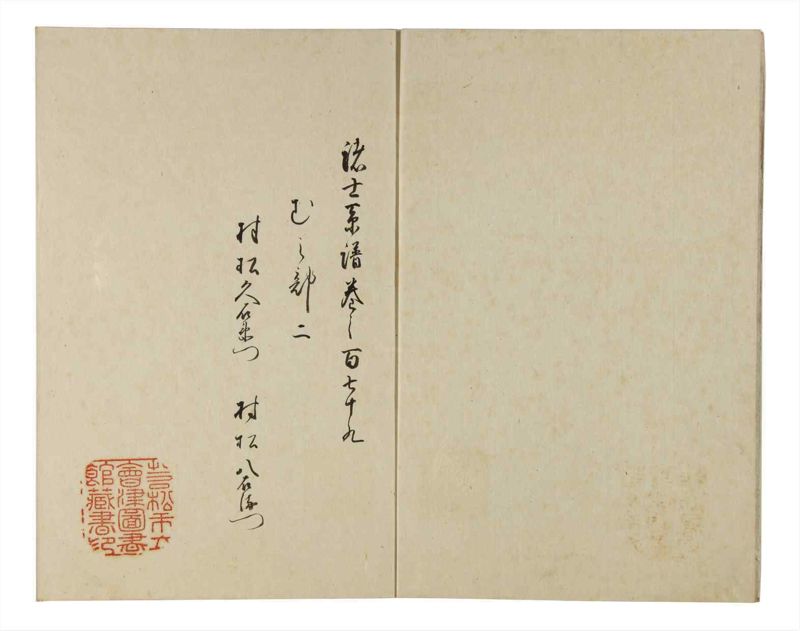 諸士系譜巻之百七十九
む之部二
村松久右衛門 村松八右衛門
若松市立
會津圖書
館藏書印